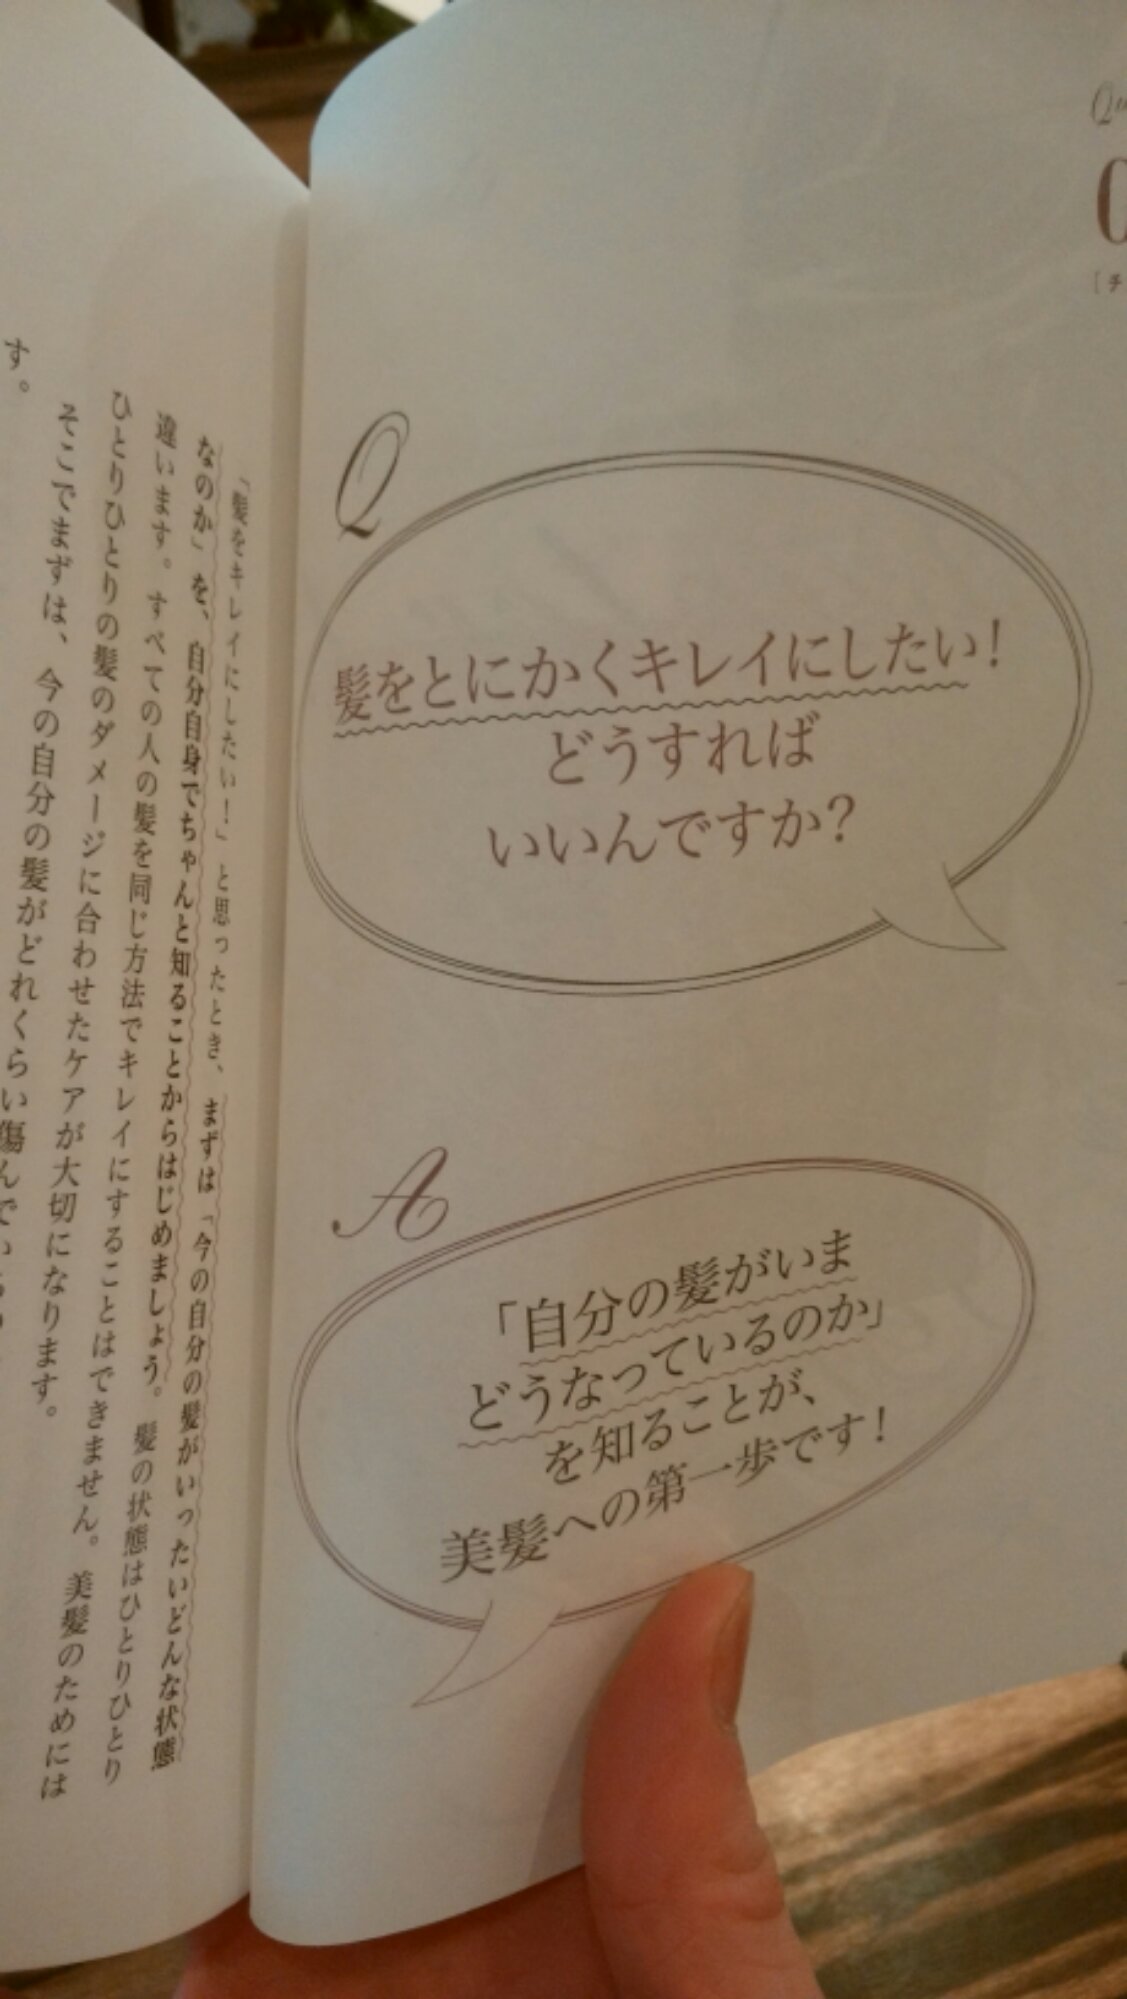 Q
髪をとにかくキレイにしたい！
どうすれば
いいんですか？
A
「自分の髪がいま
どうなっているのか」
を知ることが、
美髪への第一歩です！
「髪をキレイにしたい！」と思ったとき、まずは「今の自分の髪がいったいどんな状態
なのか」を、自分自身でちゃんと知ることからはじめましょう。髪の状態はひとりひとり
違います。すべての人の髪を同じ方法でキレイにすることはできません。美髪のためには
ひとりひとりの髪のダメージに合わせたケアが大切になります。
そこでまずは、今の自分の髪がどれくらい傷んでいるの
す。